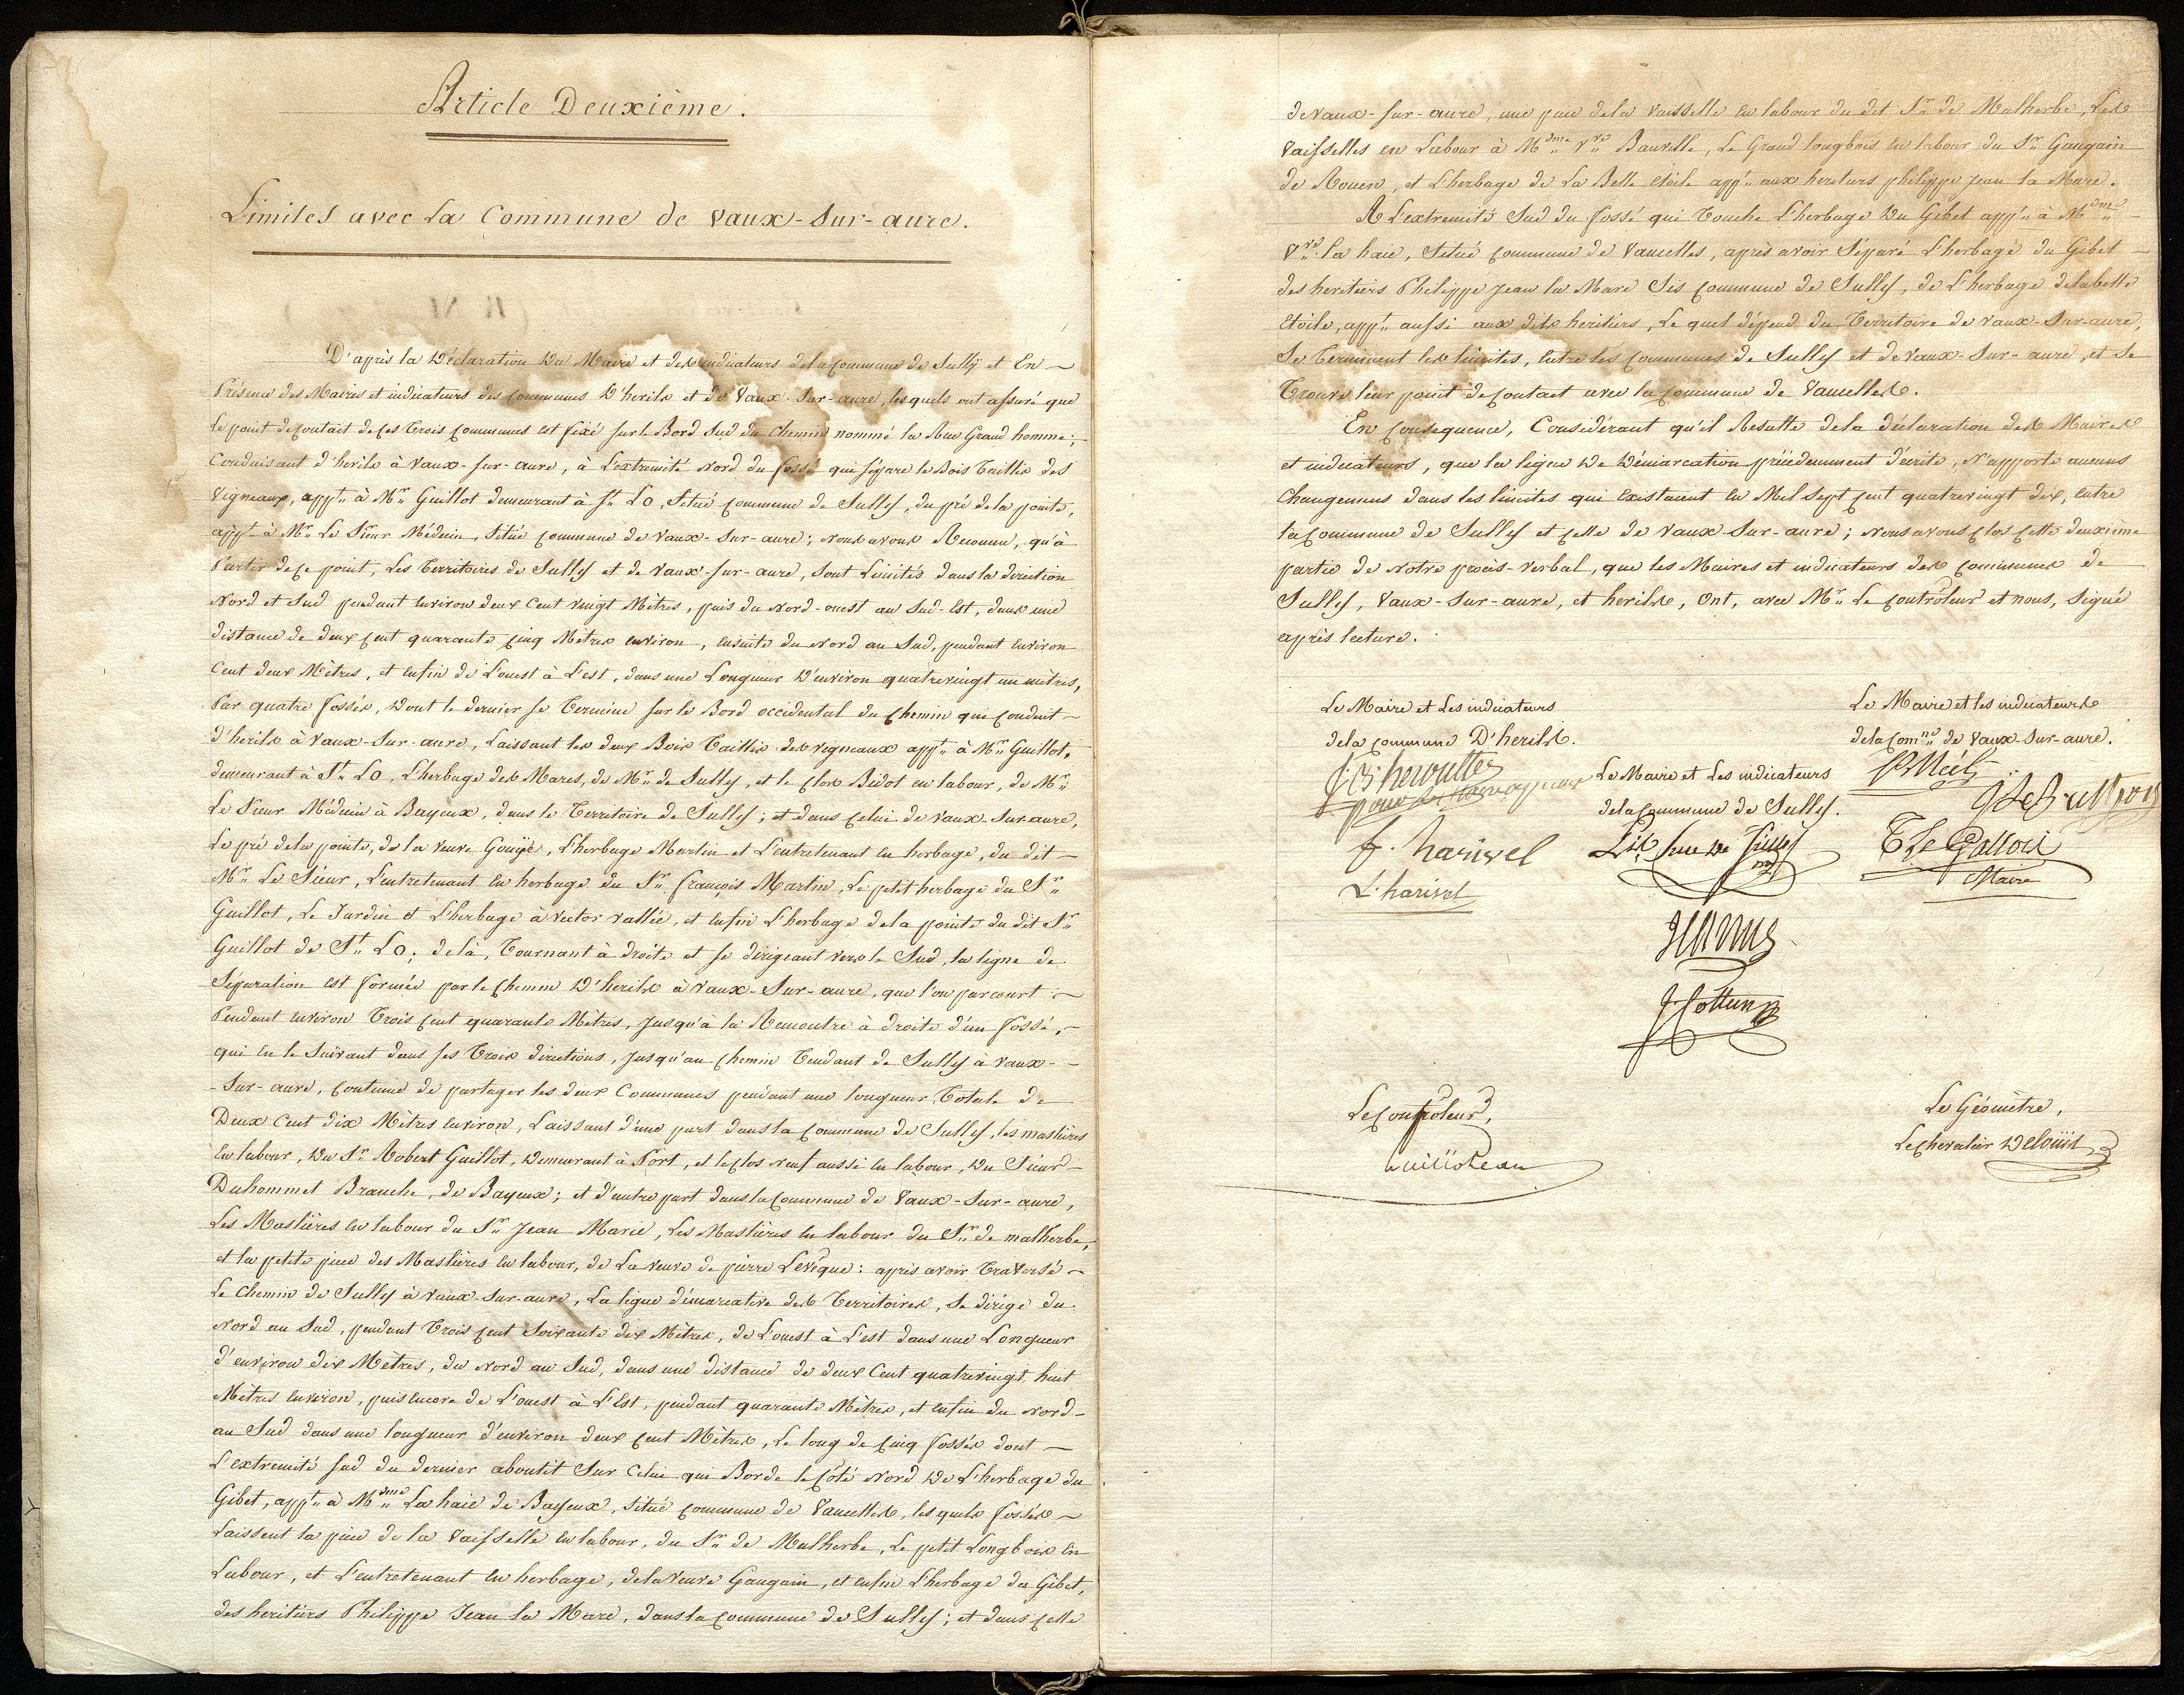 Article Deuxième.
Limites avec la Commune de Vaux-Sur-aure.
D'après la Déclaration Du Maire et des indicateurs de la Commune de Sully et En
Présence des Maires et indicateurs des Communes D'herils et de Vaux-Sur-aure, lesquels ont assuré que
Le point de Contact de Ces Trois Communes est fixé sur le Bord Sud du Chemin nommé la Rue Grand homme;
Conduisant d'herils à Vaux-sur-aure, à L'extremité Nord du fossé qui sépare le Bois Taillis des
Vigneaux, appt. à Mr. Guillot demeurant à St. Lo, Situé Commune de Sully, du pré de la pointe,
appt. à Mr. Le Sieur Médecin, Situé Commune de Vaux-Sur-aure; Nous avons Reconnu, qu'à
Partir de Ce point, Les Territoires de Sully et de Vaux-sur-aure, Sont Limités dans la direction
Nord et Sud pendant Environ deux Cent vingt Mètres, puis du Nord-ouest au Sud-Est, dans une
distance de deux Cent quarante Cinq Mètres Environ, Ensuite du Nord au Sud, pendant Environ
Cent deux Mètres, et Enfin de L'ouest à L'est, dans une Longueur D'environ quatrevingt un mètres,
Par quatre fossés, Dont le dernier se Termine sur le Bord occidental du Chemin qui Conduit
d'herils à Vaux-Sur-aure, Laissant les deux Bois Taillis des Vigneaux appt. à Mr. Guillot,
demeurant à St. Lo, L'herbage des Mares, de Mr. de Sully, et le Clos Bidot en labour, de Mr.
Le Sieur Médecin à Bayeux, dans le Territoire de Sully; et dans Celui de Vaux-Sur-aure,
Le pré de la pointe, de la Veuve Gouyé, L'herbage Martin et L'entretenant en herbage, du dit
Mr. Le Sieur, L'entretenant en herbage du Sr. François Martin, Le petit herbage du Sr.
Guillot, Le Jardin et L'herbage à victor vallée, et Enfin L'herbage de la pointe du dit Sr.
Guillot de St. Lo; de là, Tournant à droite et se dirigeant vers le Sud, la ligne de
Séparation est formée par le Chemin D'herils à Vaux-Sur-aure, que l'on parcourt
Pendant Environ Trois Cent quarante Mètres, Jusqu'à la Rencontre à droite d'un fossé,
qui en le Suivant dans ses Trois directions, Jusqu'au Chemin Tendant de Sully à Vaux-
-Sur-aure, Continue de partager les deux Communes pendant une longueur Totale de
Deux Cent dix Mètres Environ, Laissant d'une part dans la Commune de Sully, les maslières
En labour, Du Sr. Robert Guillot, Demeurant à Port, et le Clos Neuf aussi En labour, Du Sieur
Duhommet Branche, de Bayeux; et d'autre part dans la Commune de Vaux-Sur-aure,
Les Maslières En labour du Sr. Jean Marie, Les Maslières En labour du Sr. de malherbe,
et la petite pièce des Maslières En labour, de La veuve de pierre Levêque: après avoir Traversé
Le Chemin de Sully à Vaux-Sur-aure, La ligne démarcative des Territoires, Se dirige du
Nord au Sud, pendant Trois Cent Soixante dix Mètres, de L'ouest à L'est dans une Longueur
d'environ dix Mètres, du Nord au Sud, dans une distance de deux Cent quatrevingt huit
Mètres Environ, puis Encore de L'ouest à L'Est, pendant quarante Mètres, et Enfin du Nord
au Sud dans une longueur d'environ deux Cent Mètres, Le long de Cinq fossés dont
L'extremité sud du dernier aboutit Sur Celui que Borde le Côté Nord De L'herbage du
Gibet, appt. à Mdme La haie de Bayeux, Situé Commune de Vaucelles, lesquels fossés
Laissent la pièce de la Vaisselle En labour, du Sr. de Malherbe, Le petit Longbois En
Labour, et L'entretenant En herbage, de la Veuve Gaugain, et Enfin L'herbage du Gibet,
des heritiers Philippe Jean la Mare, dans la Commune de Sully; et dans Celle
de Vaux-sur-aure, une pièce de la Vaisselle En labour du dit Sr. de Malherbe, Les
Vaisselles en Labour à Mdme Vve Bauville, Le Grand longbois En labour du Sr. Gaugain
de Rouen, et L'herbage de La Belle Etoile appt. aux heritiers philippe Jean la Mare.
A L'extremité Sud du fossé qui Touche L'herbage Du Gibet appt. à Mdme
Vve la haie, Situé Commune de Vaucelles, après avoir Séparé L'herbage du Gibet
des heritiers Philippe Jean la Mare Sis Commune de Sully, de L'herbage de la belle
Etoile, appt. aussi aux dits heritiers, Le quel dépend du Territoire de Vaux-Sur-aure,
Se Terminent les limites, Entre les Communes de Sully et de Vaux-Sur-aure, et Se
Trouve leur point de Contact avec la Commune de Vaucelles.
En Consequence, Considérant qu'il Resulte de la déclaration des Maires
et indicateurs, que la ligne De Démarcation précédemment décrite, N'apporte aucuns
Changemens dans les limites qui Existaient En Mil Sept Cent quatrevingt dix, Entre
la Commune de Sully et Celle de Vaux-Sur-aure; Nous avons Clos Cette deuxième
partie de Notre procès-verbal, que les Maires et indicateurs des Communes de
Sully, Vaux-Sur-aure, et herils, Ont, avec Mr. Le Contrôleur et nous, Signé
après lecture.
Le Maire et Les indicateurs
de la Commune D'herils.
Le Maire et les indicateurs
de la Comne. de Vaux-Sur-aure.
Le Maire et Les indicateurs
de la Commune de Sully.
f. harivel
L. harivel
T Le Gallois
Maire
J Cottun
Le Contrôleur,
Le Géomètre,
Le Chevalier Delouit